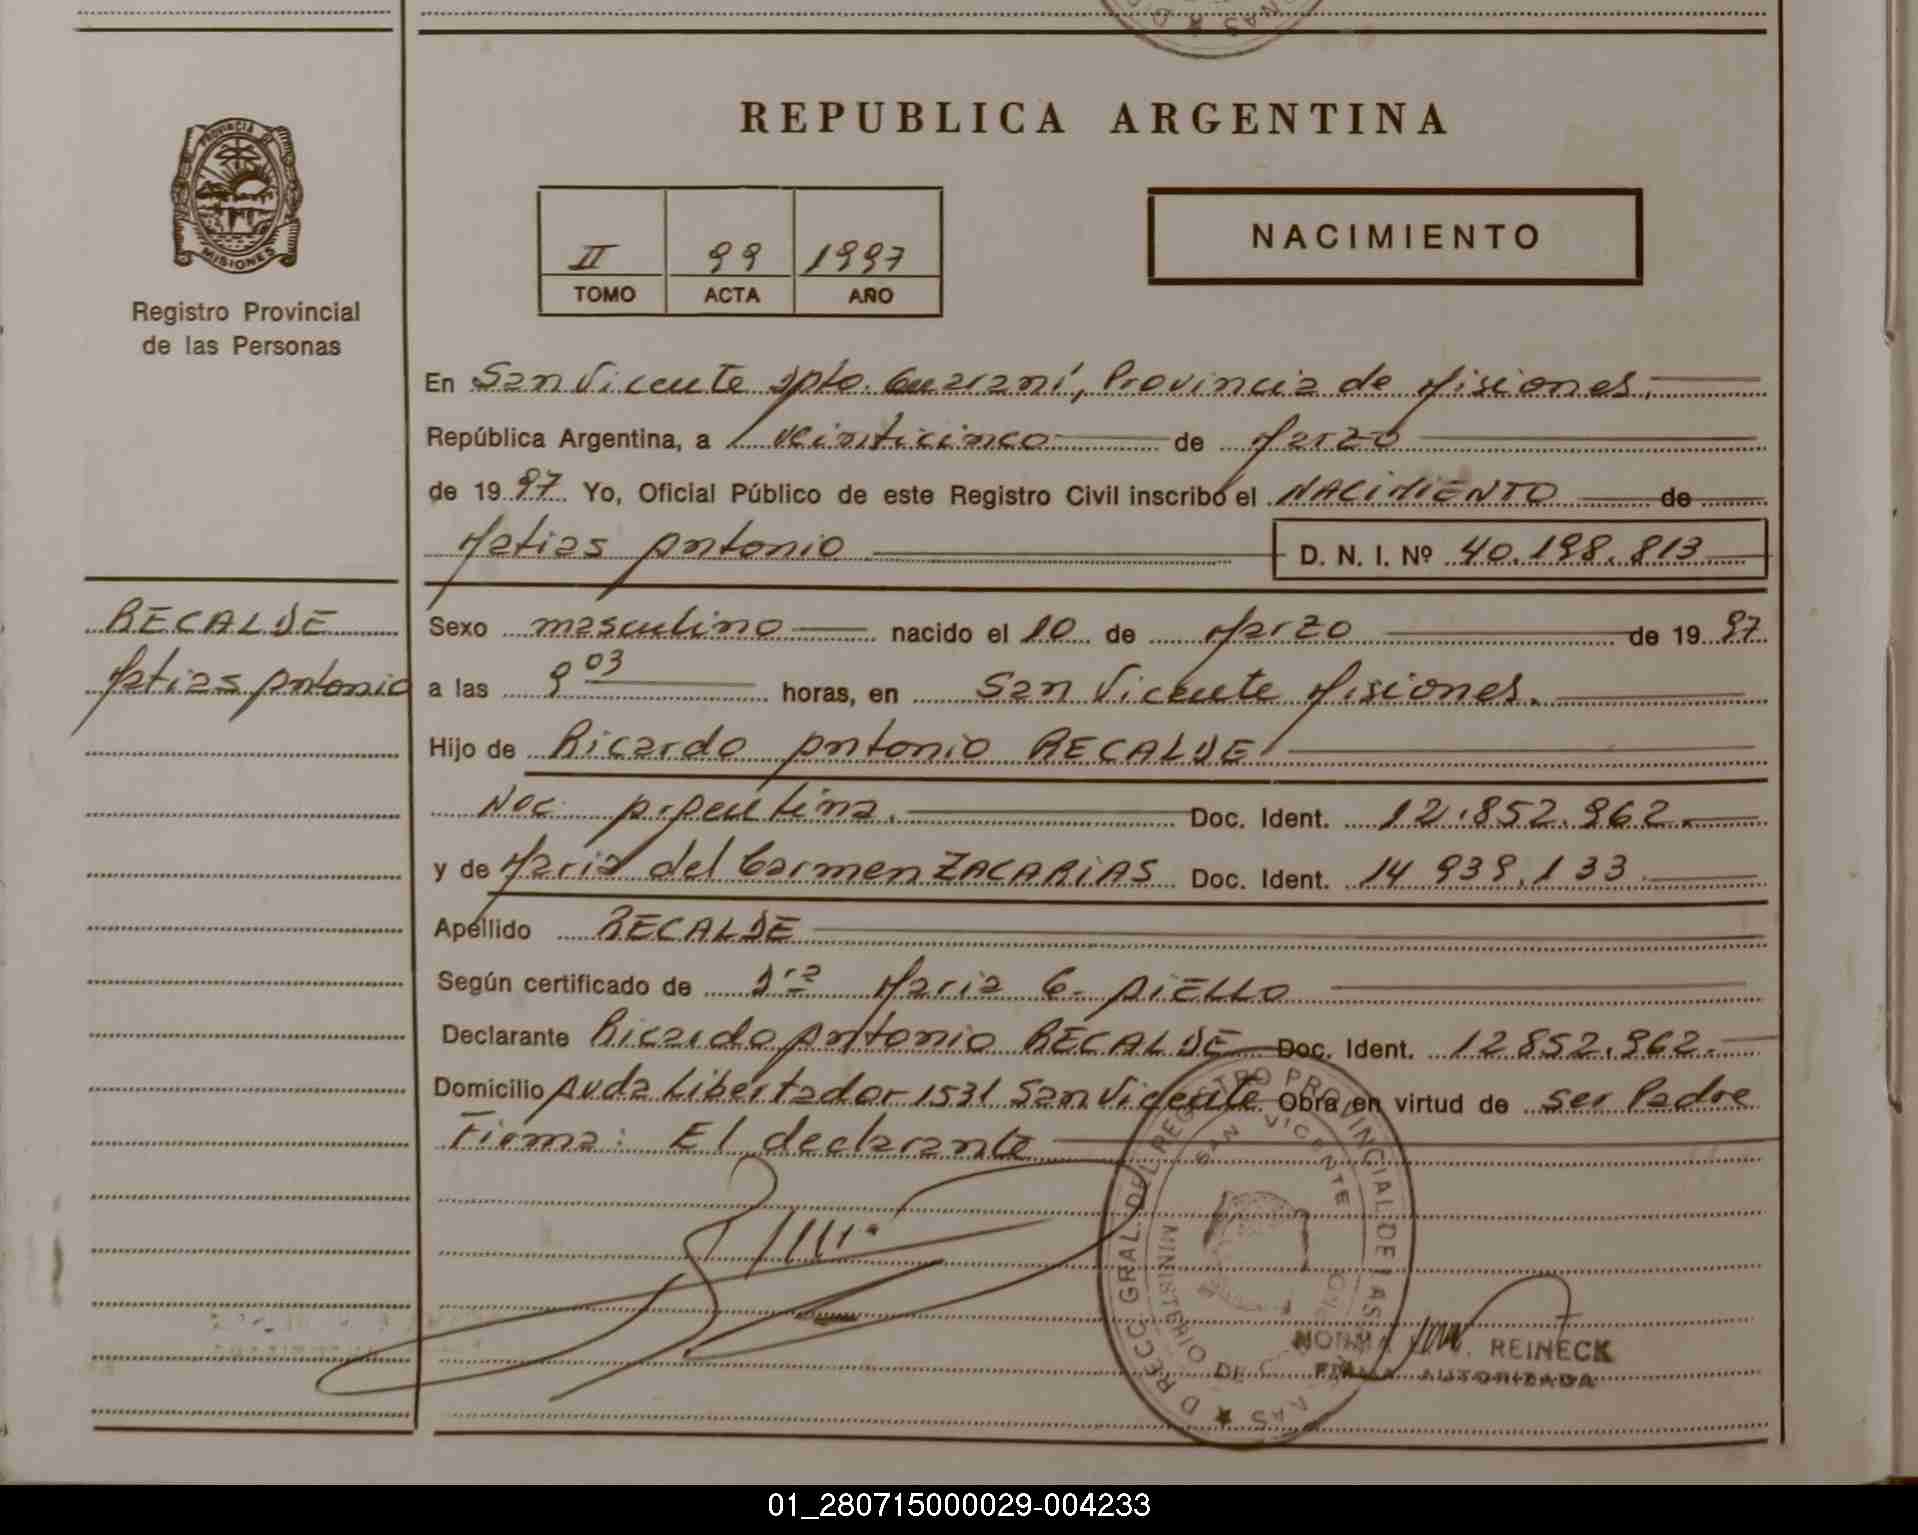 REPUBLICA ARGENTINA
PROVINCIA DE
MISIONES
Registro Provincial
de las Personas
II 99 1997
TOMO ACTA AÑO
NACIMIENTO
En San Vicente Dpto. Guaraní, Provincia de Misiones.
República Argentina, a veinticinco de Marzo
de 1997 Yo, Oficial Público de este Registro Civil inscribo el NACIMIENTO de
Matias Antonio D. N. I. Nº 40.198.813
RECALDE
Matias Antonio
Sexo masculino nacido el 10 de Marzo de 1997
a las 9 03 horas, en San Vicente Misiones.
Hijo de Ricardo Antonio RECALDE
Nac. Argentina. Doc. Ident. 12.852.962.
y de Maria del Carmen ZACARIAS Doc. Ident. 14 939.133
Apellido RECALDE
Según certificado de Dra Maria C. AiELLO
Declarante Ricardo Antonio RECALDE Doc. Ident. 12852.962.
Domicilio Avda Libertador 1531 San Vicente Obra en virtud de ser Padre
Firma: El declarante
GRAL. DEL REGISTRO PROVINCIAL DE LAS
SAN VICENTE
MINISTERIO DE
NORMA REINECK
FIRMA AUTORIZADA
01_280715000029-004233